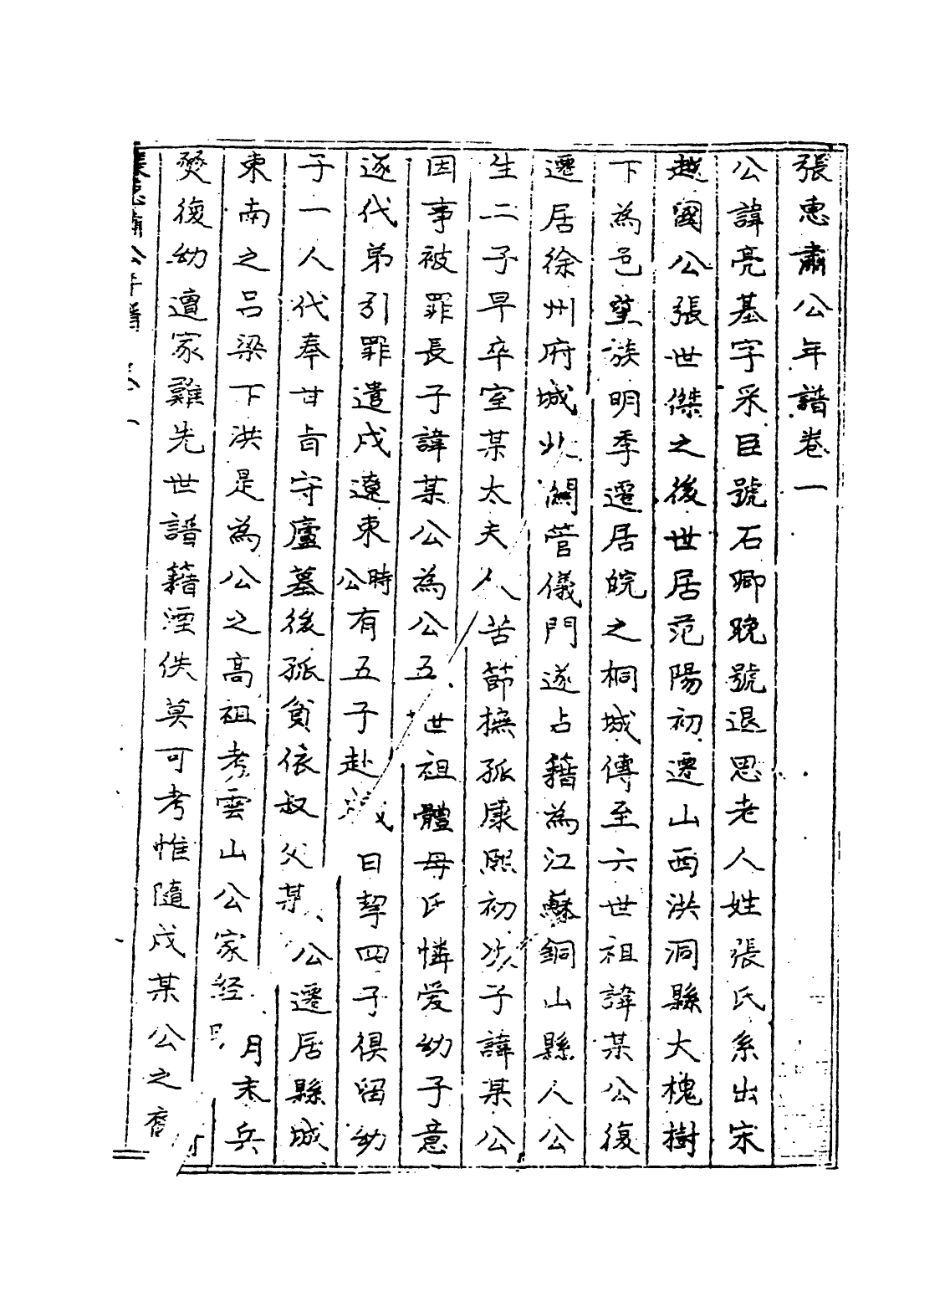 張惠肅公年譜卷一
公諱亮基字采臣號石卿晚號退思老人姓張氏系出宋
越國公張世傑之後世居范陽初遷山西洪洞縣大槐樹
下為邑望族明季遷居皖之桐城傳至六世祖諱某公復
遷居徐州府城北關管儀門遂占籍為江蘇銅山縣人公
生二子早卒室某太夫人苦節撫孤康熙初次子諱某公
因事被罪長子諱某公為公五世祖體母氏憐愛幼子意
逐代弟引罪遣戍遼東時公有五子赴戍日挈四子俱留幼
子一人代奉甘旨守廬墓後孤貧依叔父某公遷居縣城
東南之呂梁下洪是為公之高祖考雲山公家經月末兵
燹復幼遭家難先世譜籍湮佚莫可考惟隨戍某公之裔
張惠肅公年譜 卷一